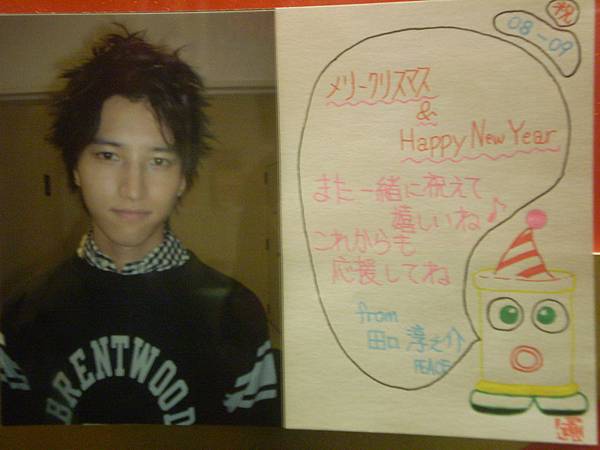 BRENTWOOD
祝
08-09
メリークリスマス
&
Happy New Year
また一緒に祝えて
嬉しいね♪
これからも
応援してね
from
田口淳之介
PEACE